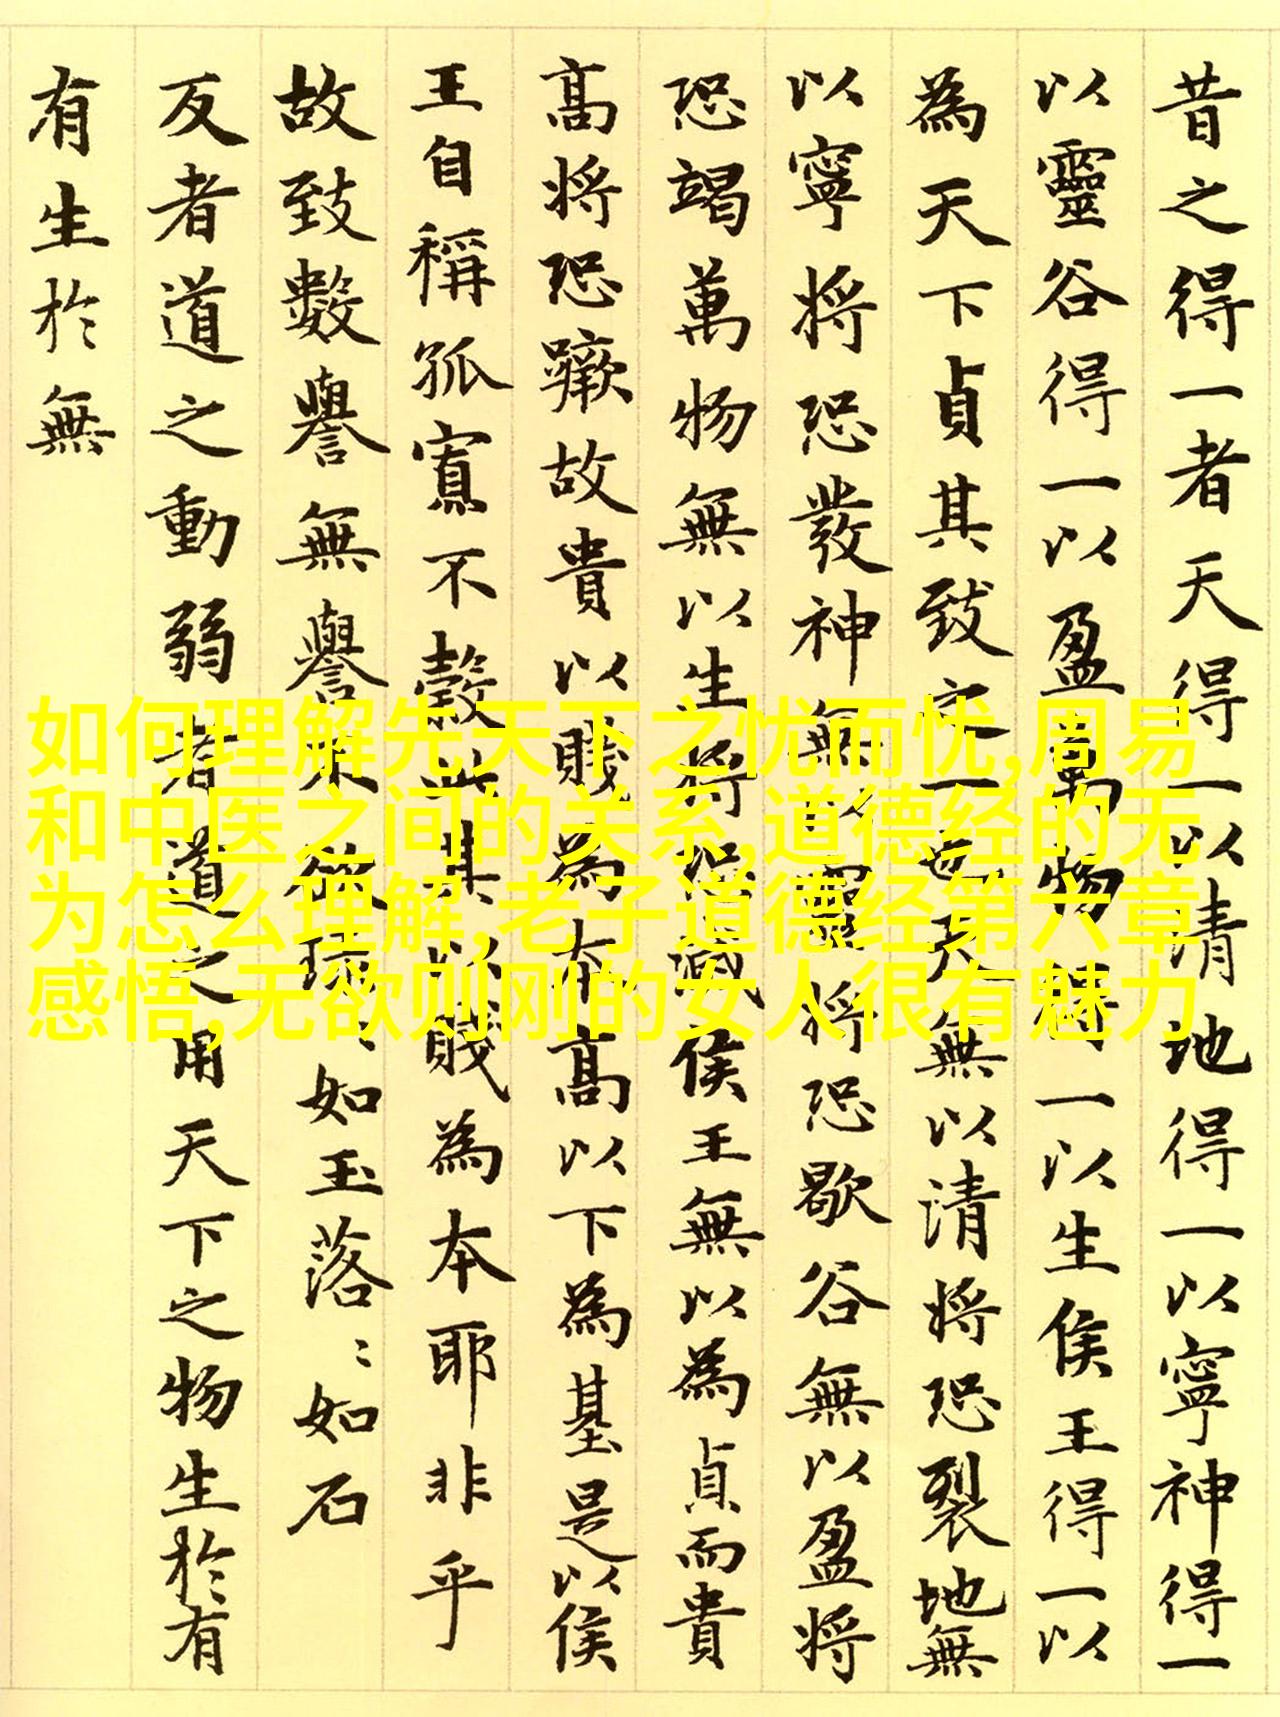 昔之得一者天得一以清地得一以寧神得一
以靈谷得一以盈萬物得一以生侯王得一以
為天下貞其致之一也天無以清將恐裂地無
以寧將恐發神無以靈將恐歇谷無以盈將
恐竭萬物無以生將恐滅侯王無以為貞而貴
高將恐蹶故貴以賤為本高以下為基是以侯
王自稱孤寡不穀此其以賤為本耶非乎
故致數譽無譽不欲琭〻如玉落〻如石
反者道之動弱者道之用天下之物生於有
有生於無
如何理解先天下之忧而忧,周易
和中医之间的关系,道德经的无
为怎么理解,老子道德经第六章
感悟,无欲则刚的女人很有魅力